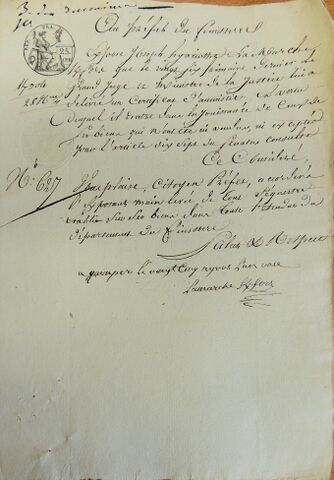 3. de
Au préfet du finistere
Expose Joseph hyacinthe La Marche
que le vingt six frimaire dernier Le
Grand Juge et Ministre de la Justice lui a
délivré un Certificat d'amnistie, au vœu
duquel il rentre dans la jouissance de Ceux de
Ses biens qui n'ont été ni vendus, ni exceptés
par l'article dix sept du Senatus Consulte
Ce Considéré,
No. 627
Vous plaise, Citoyen Préfet, accorder à
l'Exposant main levée de tous Séquestre
établis sur ses biens dans toute l'étendue du
département du finistere
Salut et Respect
a quimper le vingt cinq nivos l'an onze
Lamarche